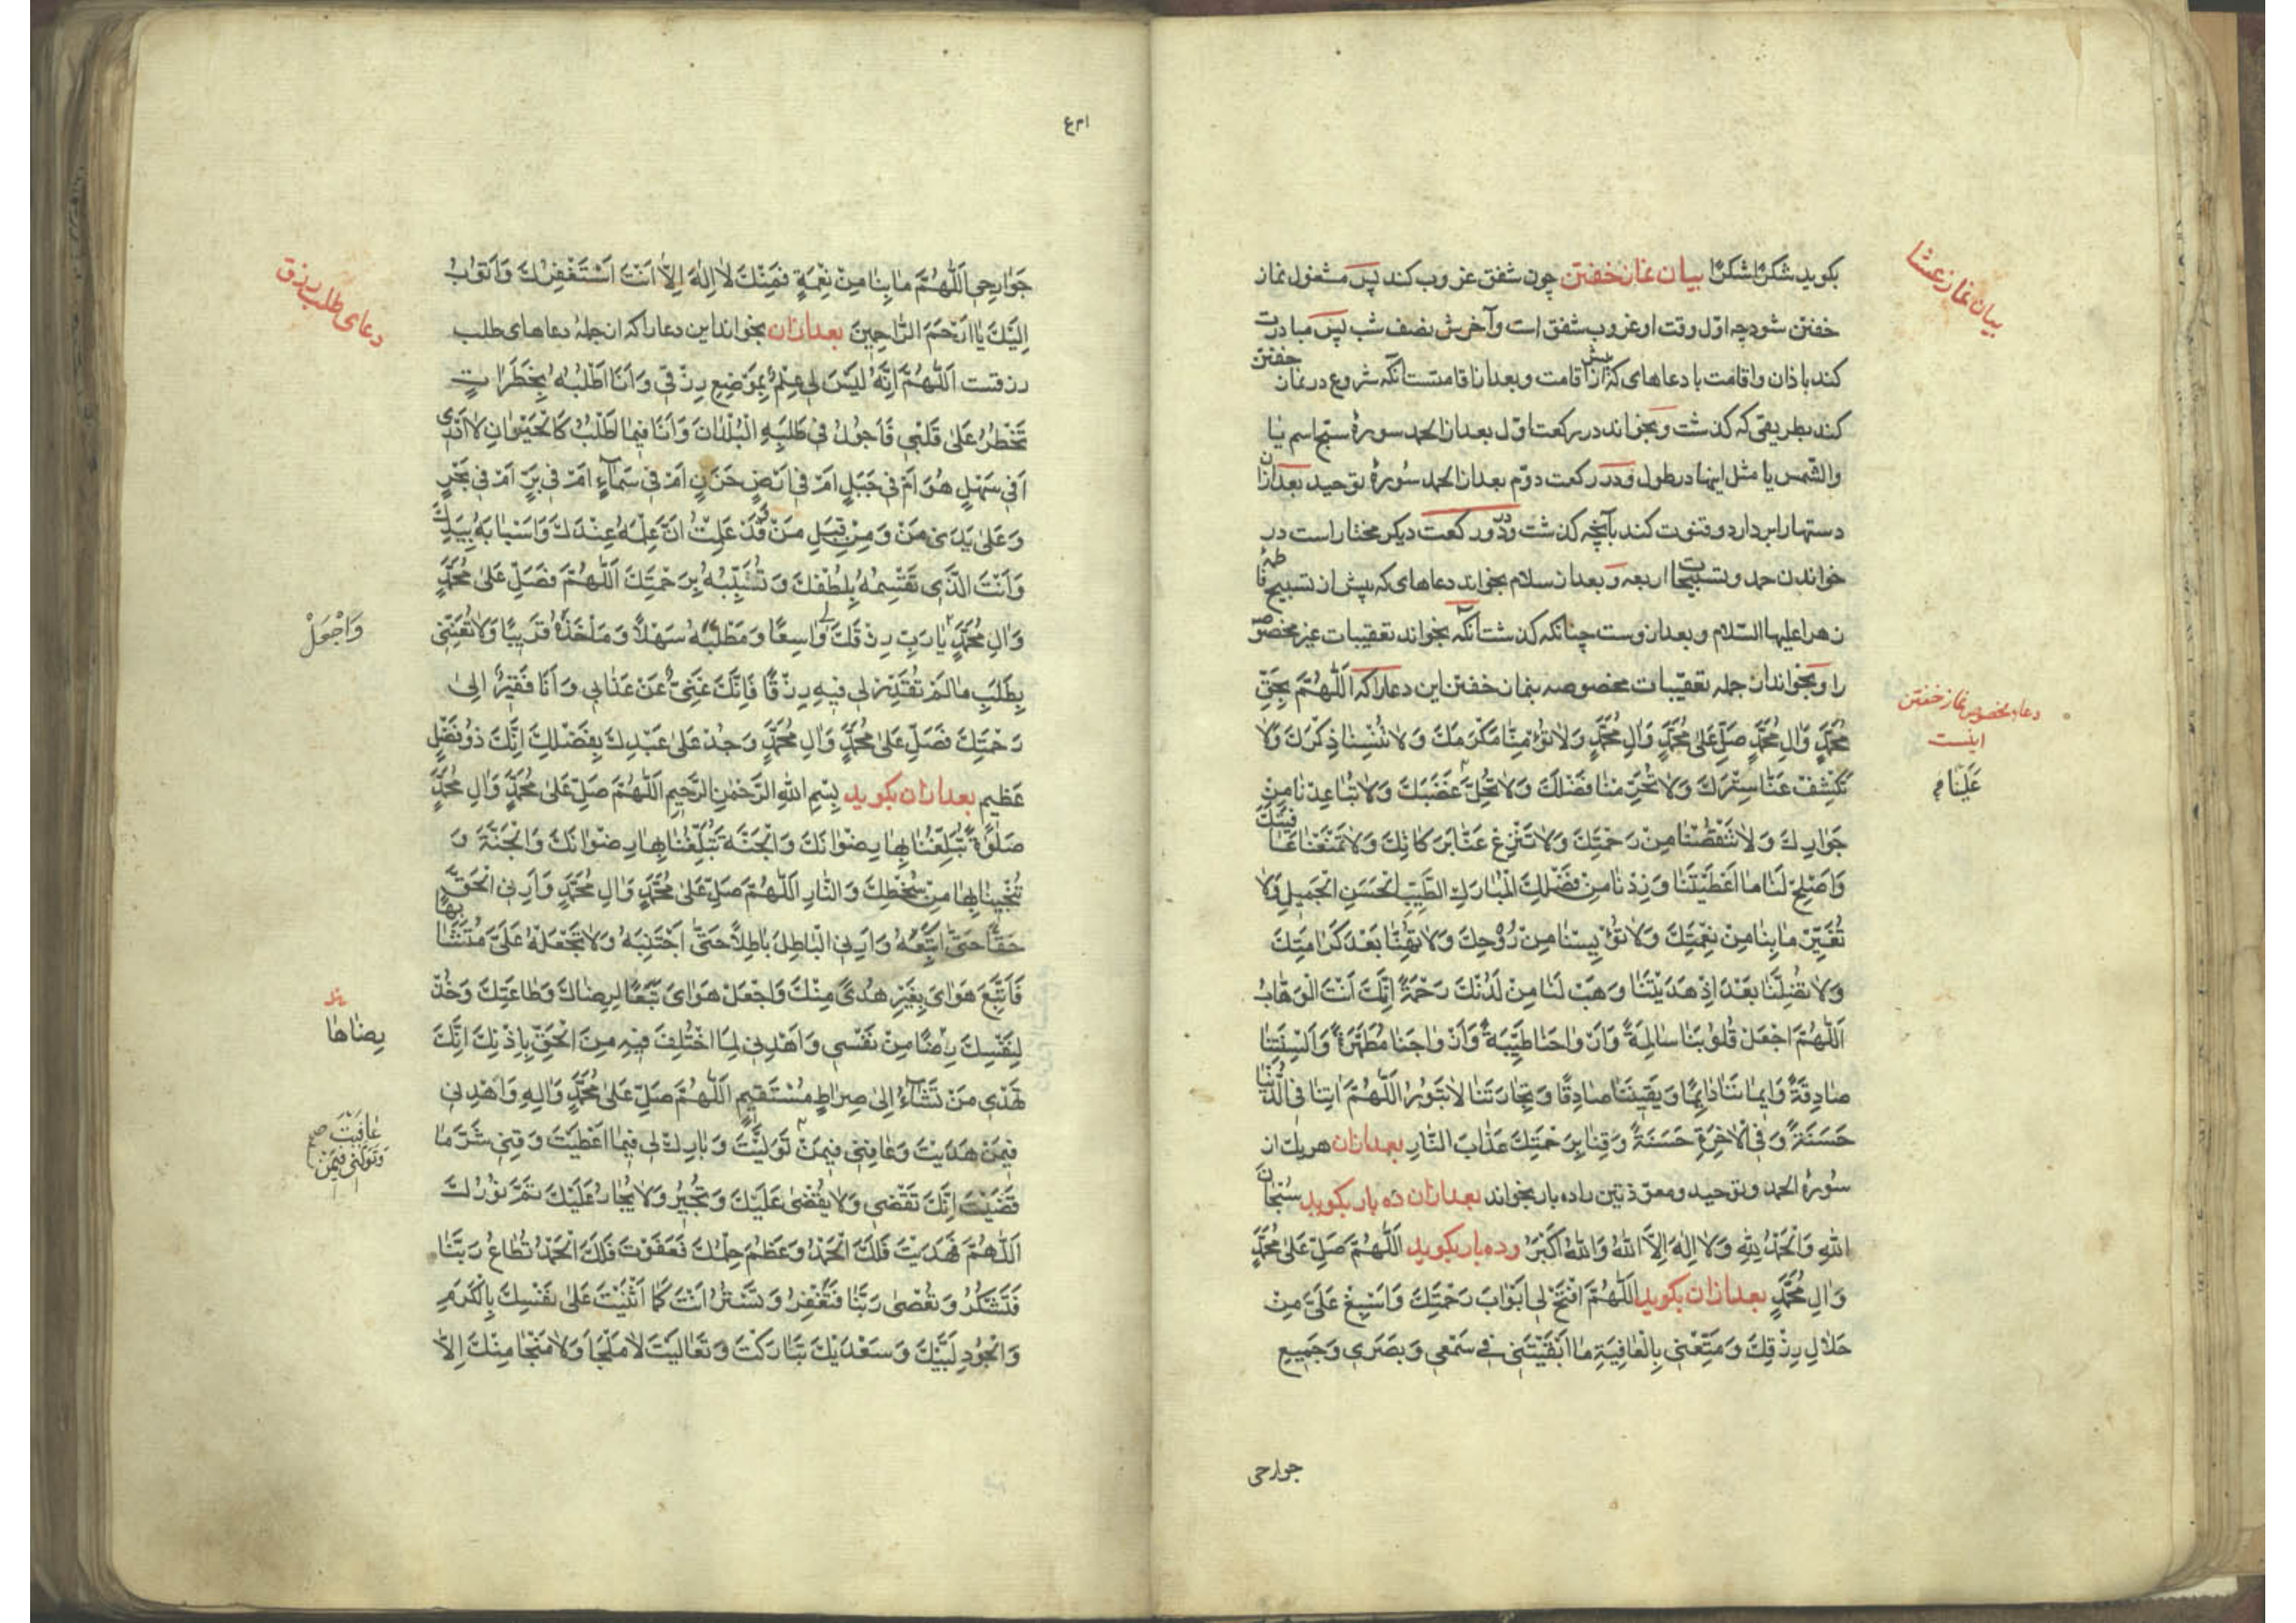 بكويد شُكْرًا شُكْرًا بيان نماز خفتن چون شفق غروب كند پس مشغول نماز
خفتن شود چه اوّل وقت او غروب شفق است و آخرش نصف شب پس مبادرت
كند باذان و اقامت با دعاهاى كه پيش از اقامت و بعد از اقامتست آنكه شروع در نماز خفتن
كند بطريقى كه كذشت و بخواند در ركعت اوّل بعد از الحمد سورهٔ سبّح اسم يا
والشّمس يا مثل اينها در طول و در ركعت دوّم بعد از الحمد سُورهٔ توحيد بعد از ان
دستها را بردارد و قنوت كند بآنچه كذشت و در دو ركعت ديكر مختار است در
خواندن حمد و تسبيحات اربعه و بعد از سلام بخواند دعاهاى كه پيش از تسبيح فاطمهٔ
زهرا عليها السّلام و بعد از وست چنانكه كذشت آنكه بخواند تعقيبات غير مخصوصه
را و بخواند از جمله تعقيبات مخصوصه بنماز خفتن اين دعا را كه اَللّٰهُمَّ بِحَقِّ
مُحَمَّدٍ وَاٰلِ مُحَمَّدٍ صَلِّ عَلىٰ مُحَمَّدٍ وَاٰلِ مُحَمَّدٍ وَلاٰ تُؤْمِنّٰا مَكْرَكَ وَلاٰ تُنْسِنٰا ذِكْرَكَ وَلاٰ
تَكْشِفْ عَنّٰا سِتْرَكَ وَلاٰ تَحْرِمْنٰا فَضْلَكَ وَلاٰ تُحِلَّ غَضَبَكَ وَلاٰ تُبٰاعِدْنٰا مِنْ
جَوٰارِكَ وَلاٰ تَنْقُصْنٰا مِنْ رَحْمَتِكَ وَلاٰ تَنْزِعْ عَنّٰا بَرَكٰاتِكَ وَلاٰ تَمْنَعْنٰا عٰافِيَتَكَ
وَاَصْلِحْ لَنٰا مٰا اَعْطَيْتَنٰا وَزِدْنٰا مِنْ فَضْلِكَ الْمُبٰارَكِ الطَّيِّبِ الْحَسَنِ الْجَمِيلِ وَلاٰ
تُغَيِّرْ مٰا بِنٰا مِنْ نِعْمَتِكَ وَلاٰ تُؤْيِسْنٰا مِنْ رَوْحِكَ وَلاٰ تُهِنّٰا بَعْدَ كَرٰامَتِكَ
وَلاٰ تُضِلَّنٰا بَعْدَ اِذْ هَدَيْتَنٰا وَهَبْ لَنٰا مِنْ لَدُنْكَ رَحْمَةً اِنَّكَ اَنْتَ الْوَهّٰابُ
اَللّٰهُمَّ اجْعَلْ قُلُوبَنٰا سٰالِمَةً وَاَرْوٰاحَنٰا طَيِّبَةً وَاَزْوٰاجَنٰا مُطَهَّرَةً وَاَلْسِنَتَنٰا
صٰادِقَةً وَاِيمٰانَنٰا دٰائِمًا وَيَقِينَنٰا صٰادِقًا وَتِجٰارَتَنٰا لاٰ تَبُورُ اَللّٰهُمَّ اٰتِنٰا فِى الدُّنْيٰا
حَسَنَةً وَفِى الْاٰخِرَةِ حَسَنَةً وَقِنٰا بِرَحْمَتِكَ عَذٰابَ النّٰارِ بعد از ان هر يك از
سُورهٔ الحمد و توحيد و معوّذتين را ده بار بخواند بعد از ان ده بار بكويد سُبْحٰانَ
اللهِ وَالْحَمْدُ لِلّٰهِ وَلاٰ اِلٰهَ اِلاَّ اللهُ وَاللهُ اَكْبَرُ و ده بار بكويد اَللّٰهُمَّ صَلِّ عَلىٰ مُحَمَّدٍ
وَاٰلِ مُحَمَّدٍ بعد از ان بكويد اَللّٰهُمَّ افْتَحْ لِى اَبْوٰابَ رَحْمَتِكَ وَاَسْبِغْ عَلَىَّ مِنْ
حَلاٰلِ رِزْقِكَ وَمَتِّعْنِى بِالْعٰافِيَةِ مٰا اَبْقَيْتَنِى فِى سَمْعِى وَبَصَرِى وَجَمِيعِ
جوارحى
بيان نماز عشا
دعاء مخصوص نماز خفتن
اينست
عَلَيْنٰا
جَوٰارِحِى اَللّٰهُمَّ مٰا بِنٰا مِنْ نِعْمَةٍ فَمِنْكَ لاٰ اِلٰهَ اِلاّٰ اَنْتَ اَسْتَغْفِرُكَ وَاَتُوبُ
اِلَيْكَ يٰا اَرْحَمَ الرّٰاحِمِينَ بعد از ان بخواند اين دعا را كه از جملهٔ دعاهاى طلب
رزقست اَللّٰهُمَّ اِنَّهُ لَيْسَ لِى عِلْمٌ بِمَوْضِعِ رِزْقِى وَاَنَا اَطْلُبُهُ بِخَطَرٰاتٍ
تَخْطُرُ عَلىٰ قَلْبِى فَاَجُولُ فِى طَلَبِهِ الْبُلْدٰانَ وَاَنَا فِيمٰا اَطْلُبُ كَالْحَيْرٰانِ لاٰ اَدْرِى
اَفِى سَهْلٍ هُوَ اَمْ فِى جَبَلٍ اَمْ فِى اَرْضٍ حَزَنٍ اَمْ فِى سَمٰاءٍ اَمْ فِى بَرٍّ اَمْ فِى بَحْرٍ
وَعَلىٰ يَدَىْ مَنْ وَمِنْ قِبَلِ مَنْ وَقَدْ عَلِمْتُ اَنَّ عِلْمَهُ عِنْدَكَ وَاَسْبٰابَهُ بِيَدِكَ
وَاَنْتَ الَّذِى تَقْسِمُهُ بِلُطْفِكَ وَتُسَبِّبُهُ بِرَحْمَتِكَ اَللّٰهُمَّ فَصَلِّ عَلىٰ مُحَمَّدٍ
وَاٰلِ مُحَمَّدٍ يٰا رَبِّ رِزْقَكَ لِى وٰاسِعًا وَمَطْلَبَهُ سَهْلاً وَمَأْخَذَهُ قَرِيبًا وَلاٰ تُعَنِّنِى
بِطَلَبِ مٰا لَمْ تُقَدِّرْ لِى فِيهِ رِزْقًا فَاِنَّكَ غَنِىٌّ عَنْ عَذٰابِى وَاَنَا فَقِيرٌ اِلىٰ
رَحْمَتِكَ فَصَلِّ عَلىٰ مُحَمَّدٍ وَاٰلِ مُحَمَّدٍ وَجُدْ عَلىٰ عَبْدِكَ بِفَضْلِكَ اِنَّكَ ذُو فَضْلٍ
عَظِيمٍ بعد از ان بكويد بِسْمِ اللهِ الرَّحْمٰنِ الرَّحِيمِ اَللّٰهُمَّ صَلِّ عَلىٰ مُحَمَّدٍ وَاٰلِ مُحَمَّدٍ
صَلٰوةً تُبَلِّغُنٰا بِهٰا رِضْوٰانَكَ وَالْجَنَّةَ تُبَلِّغُنٰا بِهٰا رِضْوٰانَكَ وَالْجَنَّةَ وَ
تُنْجِينٰا بِهٰا مِنْ سَخَطِكَ وَالنّٰارِ اَللّٰهُمَّ صَلِّ عَلىٰ مُحَمَّدٍ وَاٰلِ مُحَمَّدٍ وَاَرِنِى الْحَقَّ
حَقًّا حَتّىٰ اَتَّبِعَهُ وَاَرِنِى الْبٰاطِلَ بٰاطِلاً حَتّىٰ اَجْتَنِبَهُ وَلاٰ تَجْعَلْهُ عَلَىَّ مُتَشٰابِهًا
فَاَتَّبِعَ هَوٰاىَ بِغَيْرِ هُدًى مِنْكَ وَاجْعَلْ هَوٰاىَ تَبَعًا لِرِضٰاكَ وَطٰاعَتِكَ وَخُذْ
لِنَفْسِكَ رِضًا مِنْ نَفْسِى وَاهْدِنِى لِمَا اخْتُلِفَ فِيهِ مِنَ الْحَقِّ بِاِذْنِكَ اِنَّكَ
تَهْدِى مَنْ تَشٰاءُ اِلىٰ صِرٰاطٍ مُسْتَقِيمٍ اَللّٰهُمَّ صَلِّ عَلىٰ مُحَمَّدٍ وَاٰلِهِ وَاهْدِنِى
فِيمَنْ هَدَيْتَ وَعٰافِنِى فِيمَنْ تَوَلَّيْتَ وَبٰارِكْ لِى فِيمٰا اَعْطَيْتَ وَقِنِى شَرَّ مٰا
قَضَيْتَ اِنَّكَ تَقْضِى وَلاٰ يُقْضىٰ عَلَيْكَ وَتُجِيرُ وَلاٰ يُجٰارُ عَلَيْكَ تَمَّ نُورُكَ
اَللّٰهُمَّ فَهَدَيْتَ فَلَكَ الْحَمْدُ وَعَظُمَ حِلْمُكَ فَعَفَوْتَ فَلَكَ الْحَمْدُ تُطٰاعُ رَبَّنٰا
فَتَشْكُرُ وَتُعْصىٰ رَبَّنٰا فَتَغْفِرُ وَتَسْتُرُ اَنْتَ كَمٰا اَثْنَيْتَ عَلىٰ نَفْسِكَ بِالْكَرَمِ
وَالْجُودِ لَبَّيْكَ وَسَعْدَيْكَ تَبٰارَكْتَ وَتَعٰالَيْتَ لاٰ مَلْجَاَ وَلاٰ مَنْجٰا مِنْكَ اِلاّٰ
دعاى طلب رزق
وَاجْعَلْ
رِضٰاهٰا
عٰافَيْتَ
وَتَوَلَّنِى فِيمَنْ